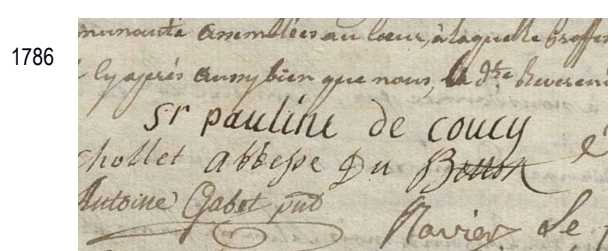 1786
munauté assemblées au coeur, a laquelle
cy aprés aussy bien que nous, la dte Reverend
Sr pauline de coucy
chollet abbesse du Betton
Antoine Gabet